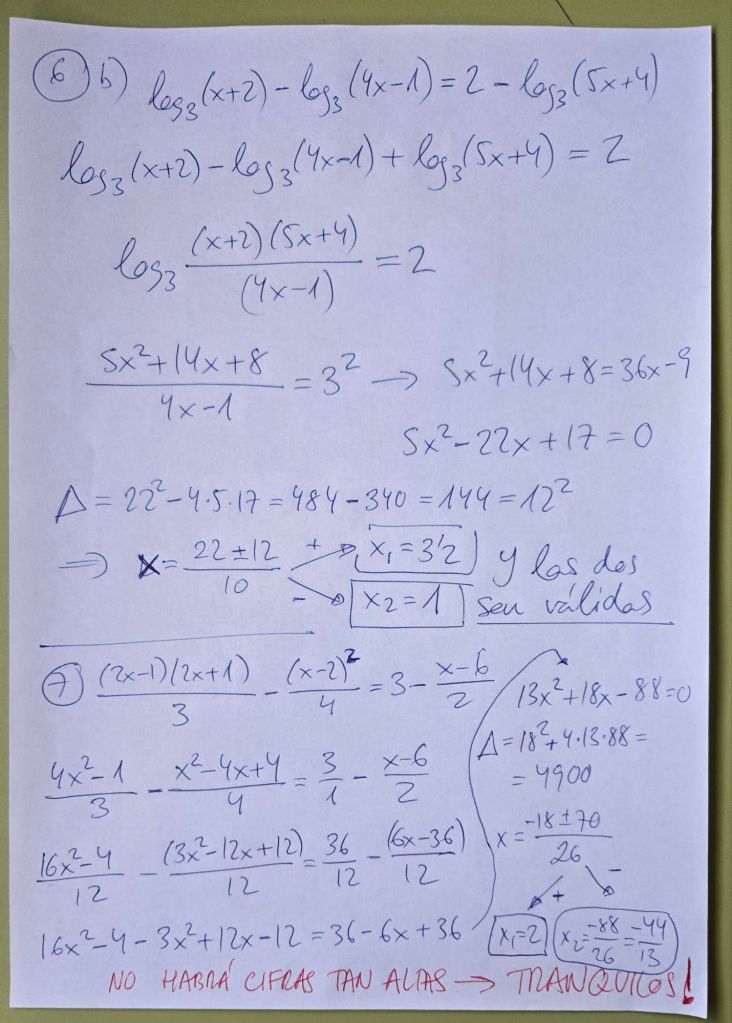 6) b) log₃(x+2) - log₃(4x-1) = 2 - log₃(5x+4)
log₃(x+2) - log₃(4x-1) + log₃(5x+4) = 2
log₃ (x+2)(5x+4) / (4x-1) = 2
5x²+14x+8 / 4x-1 = 3² → 5x²+14x+8=36x-9
5x²-22x+17=0
Δ = 22²-4·5·17 = 484-340 = 144 = 12²
⇒ x = 22±12 / 10 + x₁ = 3'2 - x₂ = 1 y las dos
seu válidas
7) (2x-1)(2x+1) / 3 - (x-2)² / 4 = 3 - x-6 / 2
4x²-1 / 3 - x²-4x+4 / 4 = 3/1 - x-6 / 2
16x²-4 / 12 - (3x²-12x+12) / 12 = 36/12 - (6x-36) / 12
16x²-4-3x²+12x-12 = 36-6x+36
13x²+18x-88=0
Δ=18²+4·13·88=
= 4900
x = -18±70 / 26
+ -
x₁=2 x₂= -88/26 = -44/13
NO HABRÁ CIFRAS TAN ALTAS → TRANQUILOS!